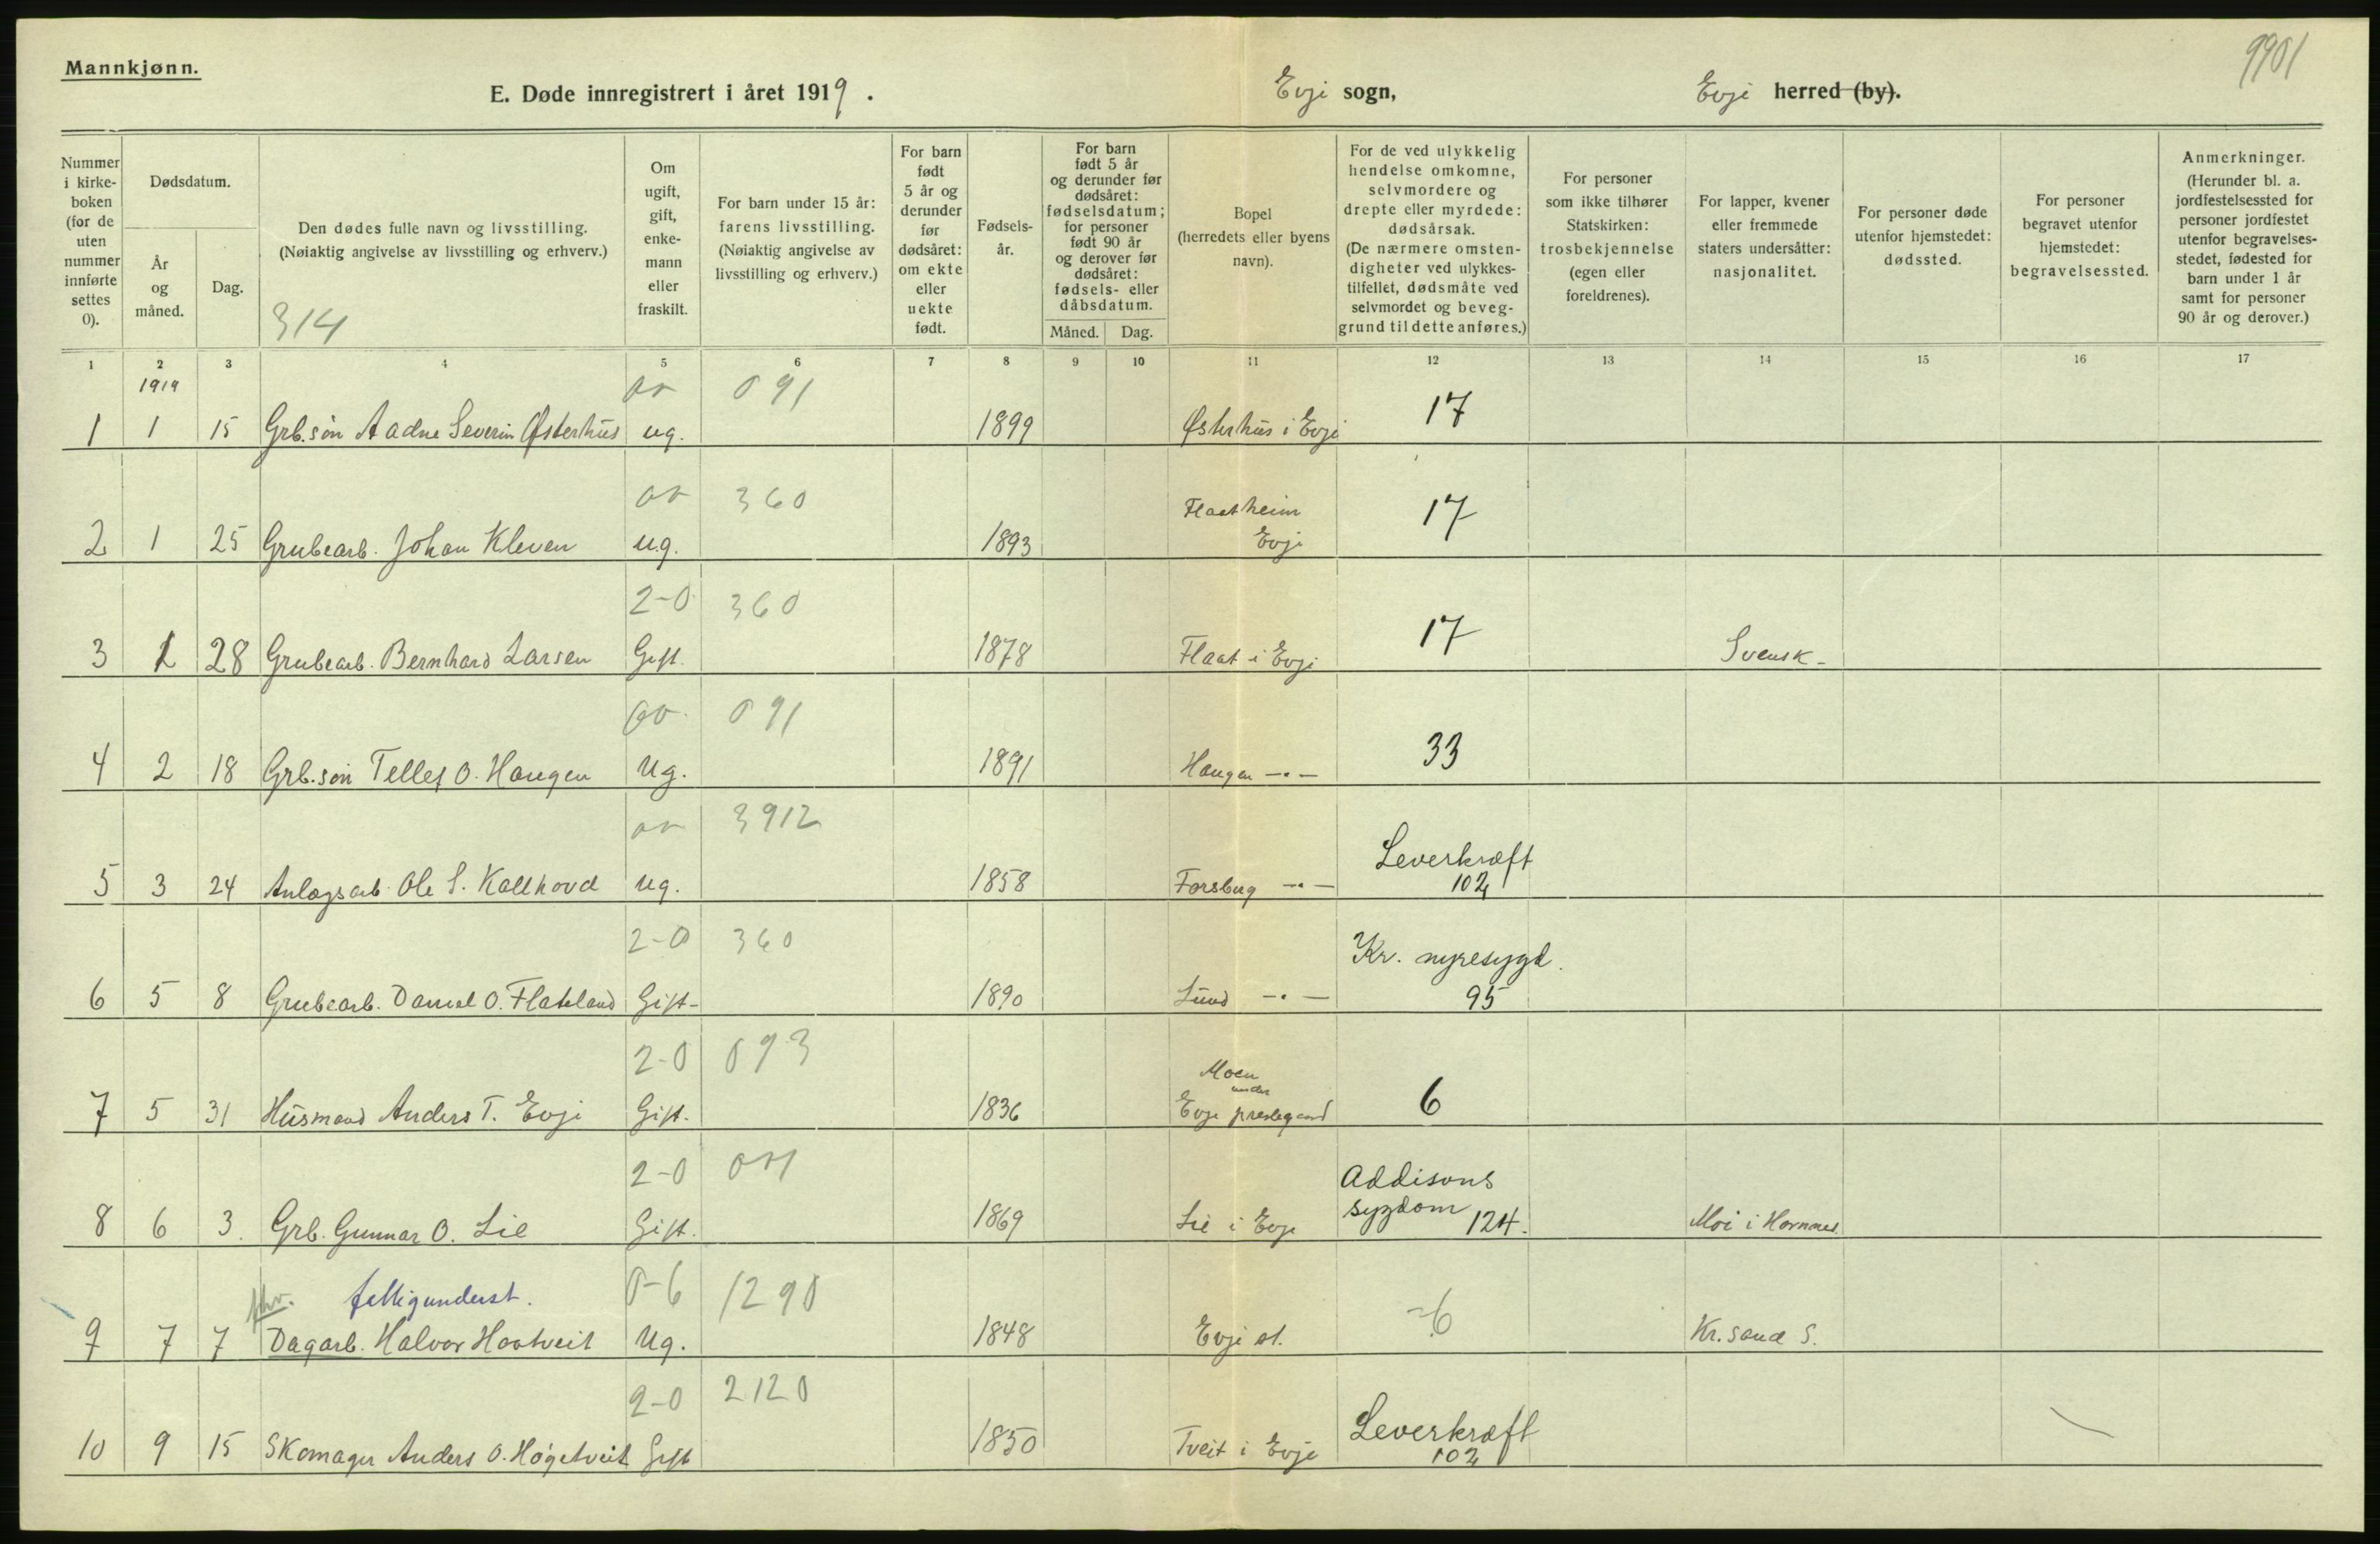 9901
Mannkjønn.
E. Døde innregistrert i året 1919.
Evje sogn,
Evje herred (by).
Nummer i kirke- boken (for de uten nummer innførte settes 0).
Dødsdatum.
År og måned.
Dag.
Den dødes fulle navn og livsstilling.
(Nøiaktig angivelse av livsstilling og erhverv.)
314
Om ugift, gift, enke- mann eller fraskilt.
For barn under 15 år: farens livsstilling. (Nøiaktig angivelse av livsstilling og erhverv.)
For barn født 5 år og derunder før dødsåret: om ekte eller uekte født.
Fødsels- år.
For barn født 5 år og derunder før dødsåret: fødselsdatum; for personer født 90 år og derover før dødsåret: fødsels- eller dåbsdatum.
Måned. Dag.
Bopel (herredets eller byens navn).
For de ved ulykkelig hendelse omkomne, selvmordere og drepte eller myrdede: dødsårsak. (De nærmere omsten- digheter ved ulykkes- tilfellet, dødsmåte ved selvmordet og beveg- grund til dette anføres.)
For personer som ikke tilhører Statskirken: trosbekjennelse (egen eller foreldrenes).
For lapper, kvener eller fremmede staters undersåtter: nasjonalitet.
For personer døde utenfor hjemstedet: dødssted.
For personer begravet utenfor hjemstedet: begravelsessted.
Anmerkninger. (Herunder bl. a. jordfestelsessted for personer jordfestet utenfor begravelses- stedet, fødested for barn under 1 år samt for personer 90 år og derover.)
1 2 3 4 5 6 7 8 9 10 11 12 13 14 15 16 17
1919
091
1 1 15 Grb.søn Aadne Severin Østerhus ug. 1899 Østerhus i Evje 17
360
2 1 25 Grubearb. Johan Kleven ug. 1893 Flaatheim Evje 17
2-0 360
3 1 28 Grubearb. Bernhard Larsen Gift. 1878 Flaat i Evje 17 Svensk-
091
4 2 18 Grb.søn Tellef O. Haugen Ug. 1891 Haugen -"- 33
3912
5 3 24 Anlægsarb. Ole S. Kallhovd ug. 1858 Forsberg -"- Leverkræft 102
2-0 360
6 5 8 Grubearb. Daniel O. Flateland Gift- 1890 Lund -"- Kr. nyresygd. 95
2-0 093
7 5 31 Husmand Anders T. Evje Gift. 1836 Moen under Evje prestegaard 6
2-0
8 6 3. Grb. Gunnar O. Lie Gift. 1869 Lie i Evje Addisons sygdom 124. Moi i Hornnes.
fattigunderst. 0-6 1290
9 7 7 Dagarb. Halvor Haatveit Ug. 1848 Evje st. 6 Kr.sand S.
2-0 2120
10 9 15 Skomager Anders O. Høgetveit Gift 1850 Tveit i Evje Leverkræft 102